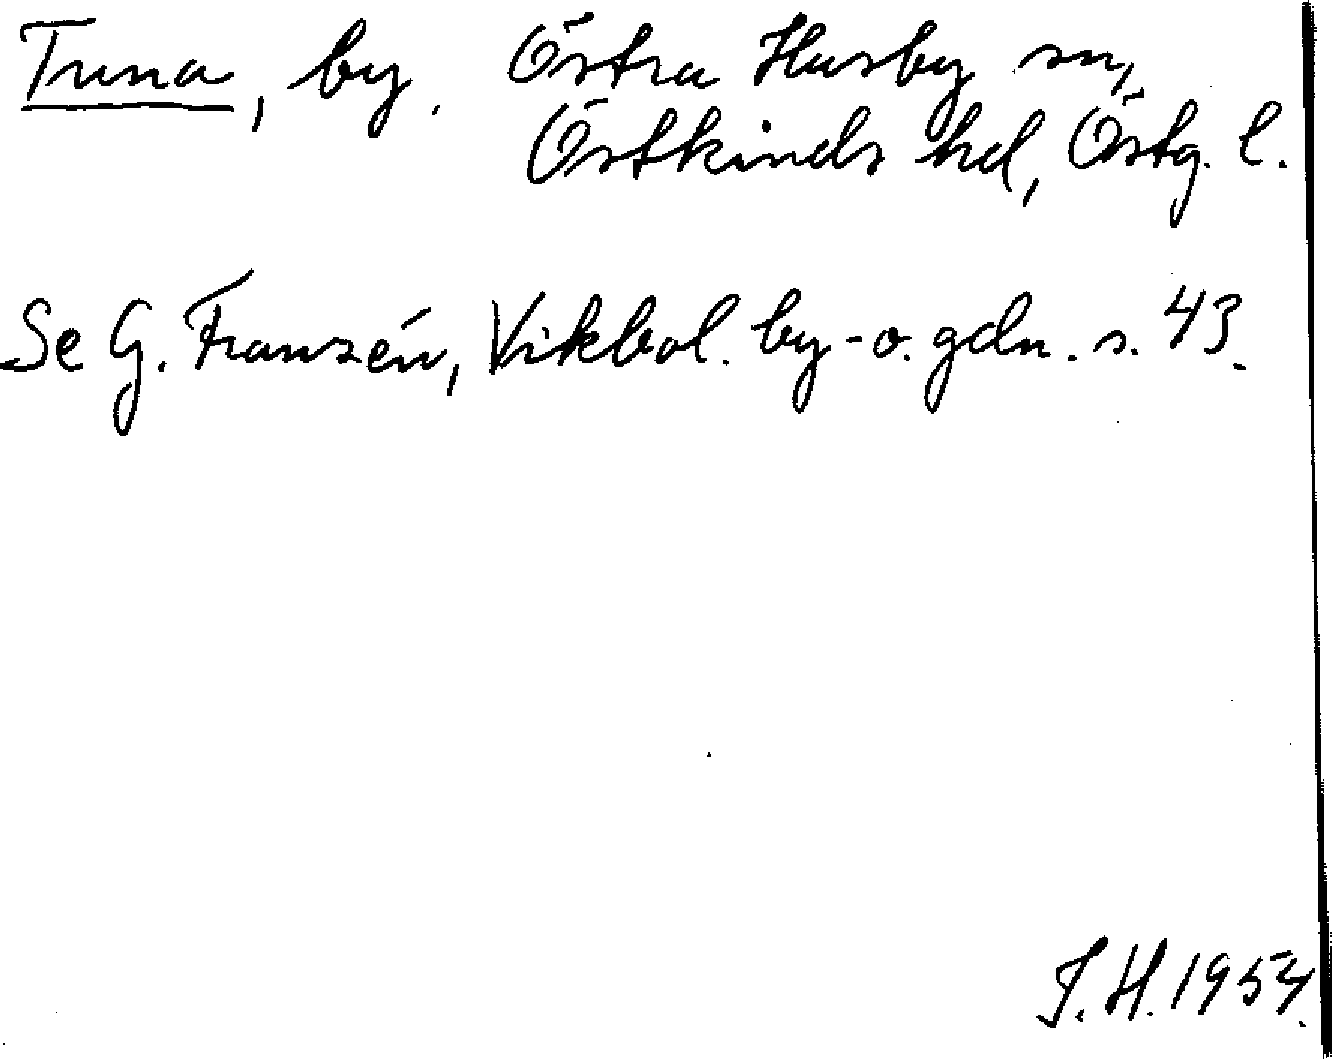 Tuna, by. Östra Husby sn,
Östkinds hd, Östg. l.
Se G. Franzén, Vikbol. by- o. gdn. s. 43.
J. H. 1954.